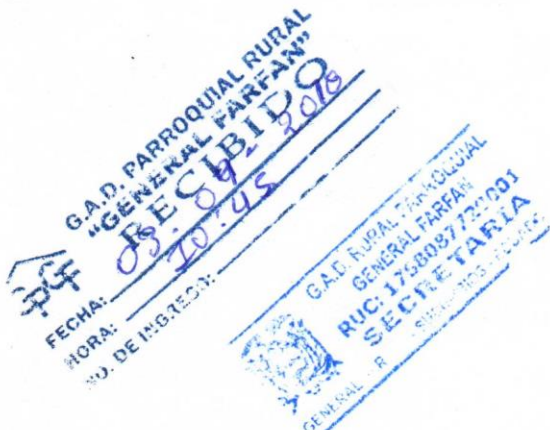 G.A.D. PARROQUIAL RURAL
"GENERAL FARFAN"
RECIBIDO
FECHA: 03-09-2018
HORA: 10:45
NO. DE INGRESO:
GPGF
G.A.D. RURAL PARROQUIAL
GENERAL FARFAN
RUC:
SECRETARIA
GENERAL